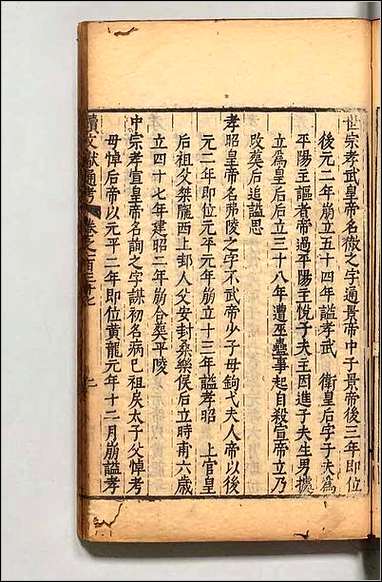 世宗孝武皇帝名徹之字通景帝中子景帝後三年即位
後元二年崩立五十四年謚孝武 衛皇后字子夫為
平陽主謳者帝過平陽主悅子夫主因進子夫生男據
立為皇后后立三十八年遭巫蠱事起自殺宣帝立乃
改葵后追謚思
孝昭皇帝名弗陵之字不武帝少子母鉤弋夫人帝以後
元二年即位元平元年崩立十三年謚孝昭 上官皇
后祖父桀隴西上邽人父安封桑樂侯后立時甫六歲
立四十七年建昭二年崩合葵平陵
中宗孝宣皇帝名詢之字謀初名病已祖戾太子父悼考
母悼后帝以元平二年即位黃龍元年十二月崩謚孝
續文獻通考 卷之一百 二